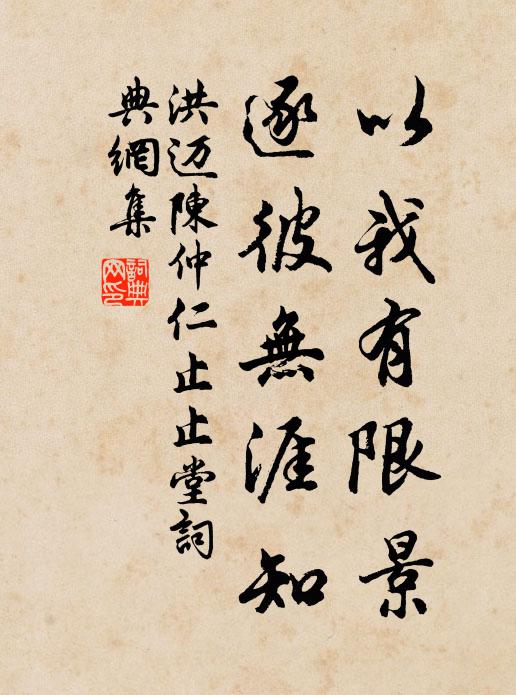 以我有限景
逐彼無涯知
洪迈陳仲仁止止堂詞
典網集
詞典
网印